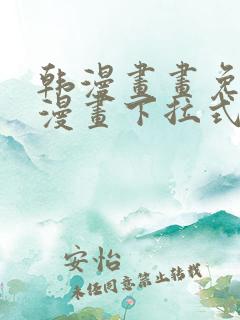 韩漫畫畫免
漫畫下拉式
安怡
未经同意禁止转载